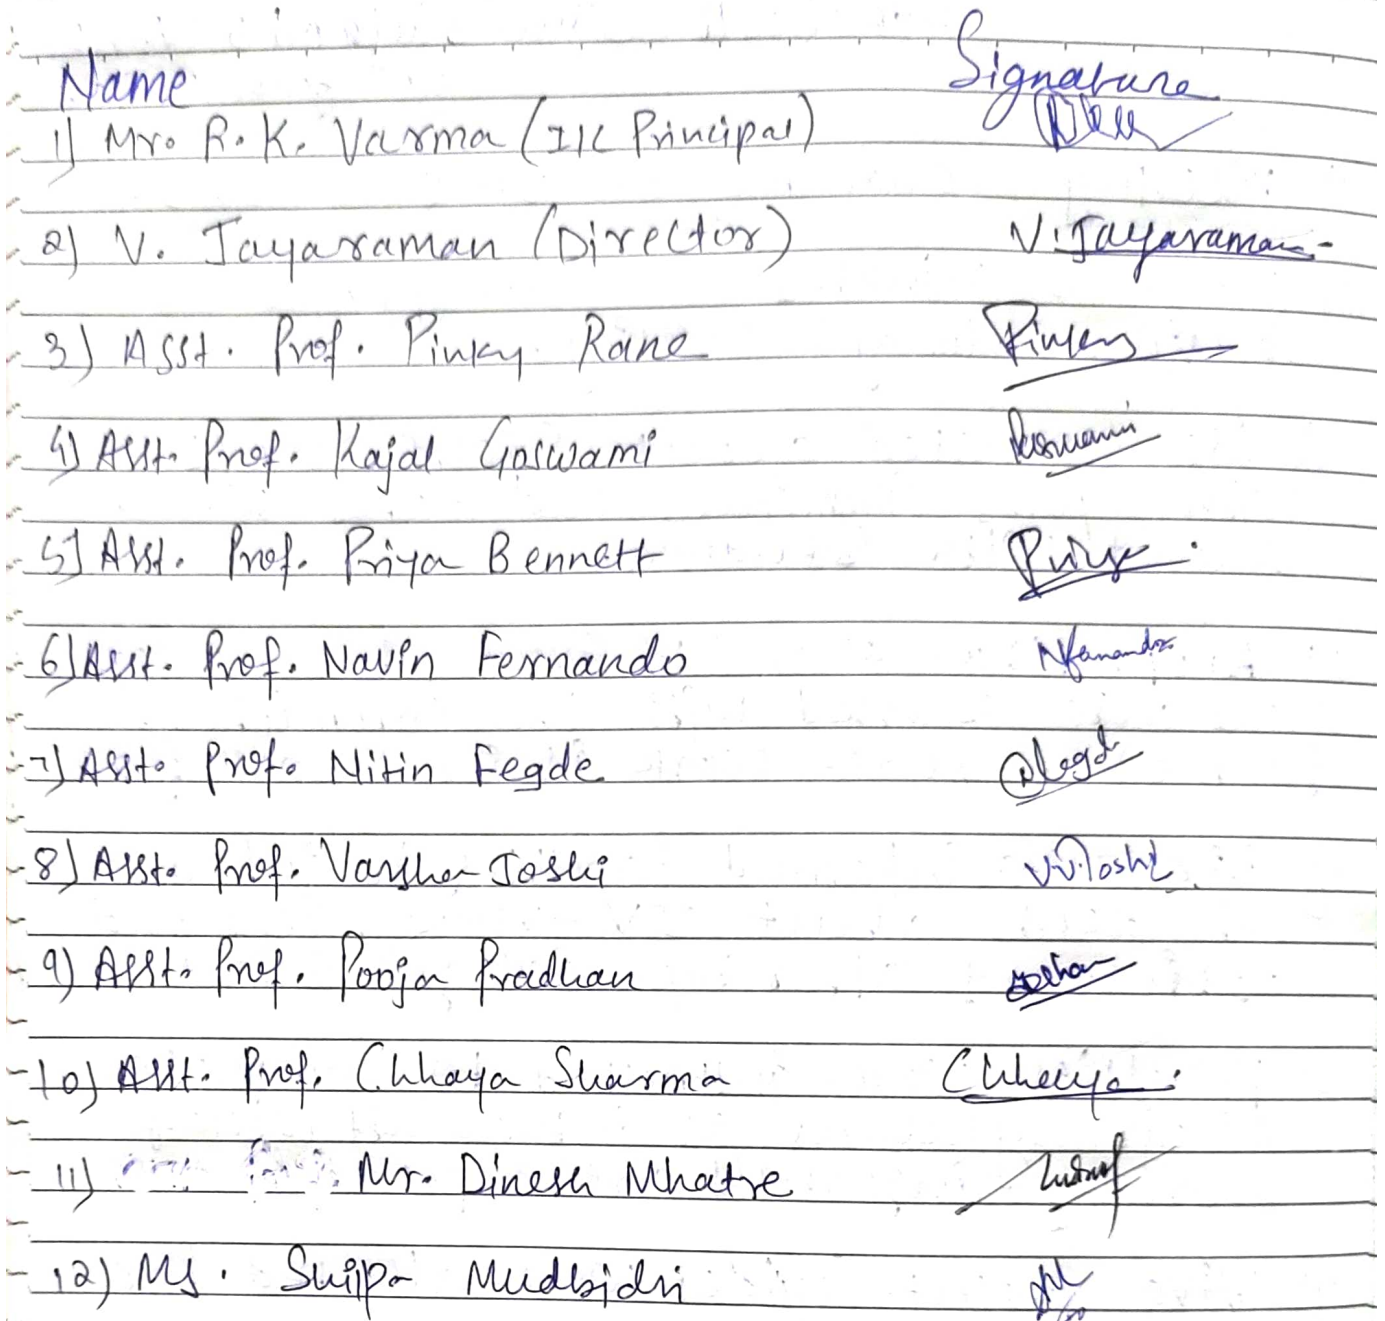 Name Signature
1) Mr. R. K. Varma (I/C Principal)
2) V. Jayaraman (Director) V. Jayaraman
3) Asst. Prof. Pinky Rane Pinky
4) Asst. Prof. Kajal Goswami Goswami
5) Asst. Prof. Priya Bennett Priya
6) Asst. Prof. Navin Fernando
7) Asst. Prof. Nitin Fegde
8) Asst. Prof. Varsha Joshi V.V.Joshi
9) Asst. Prof. Pooja Pradhan
10) Asst. Prof. Chhaya Sharma Chhaya
11) Mr. Dinesh Mhatre
12) Ms. Shilpa Mudbidri